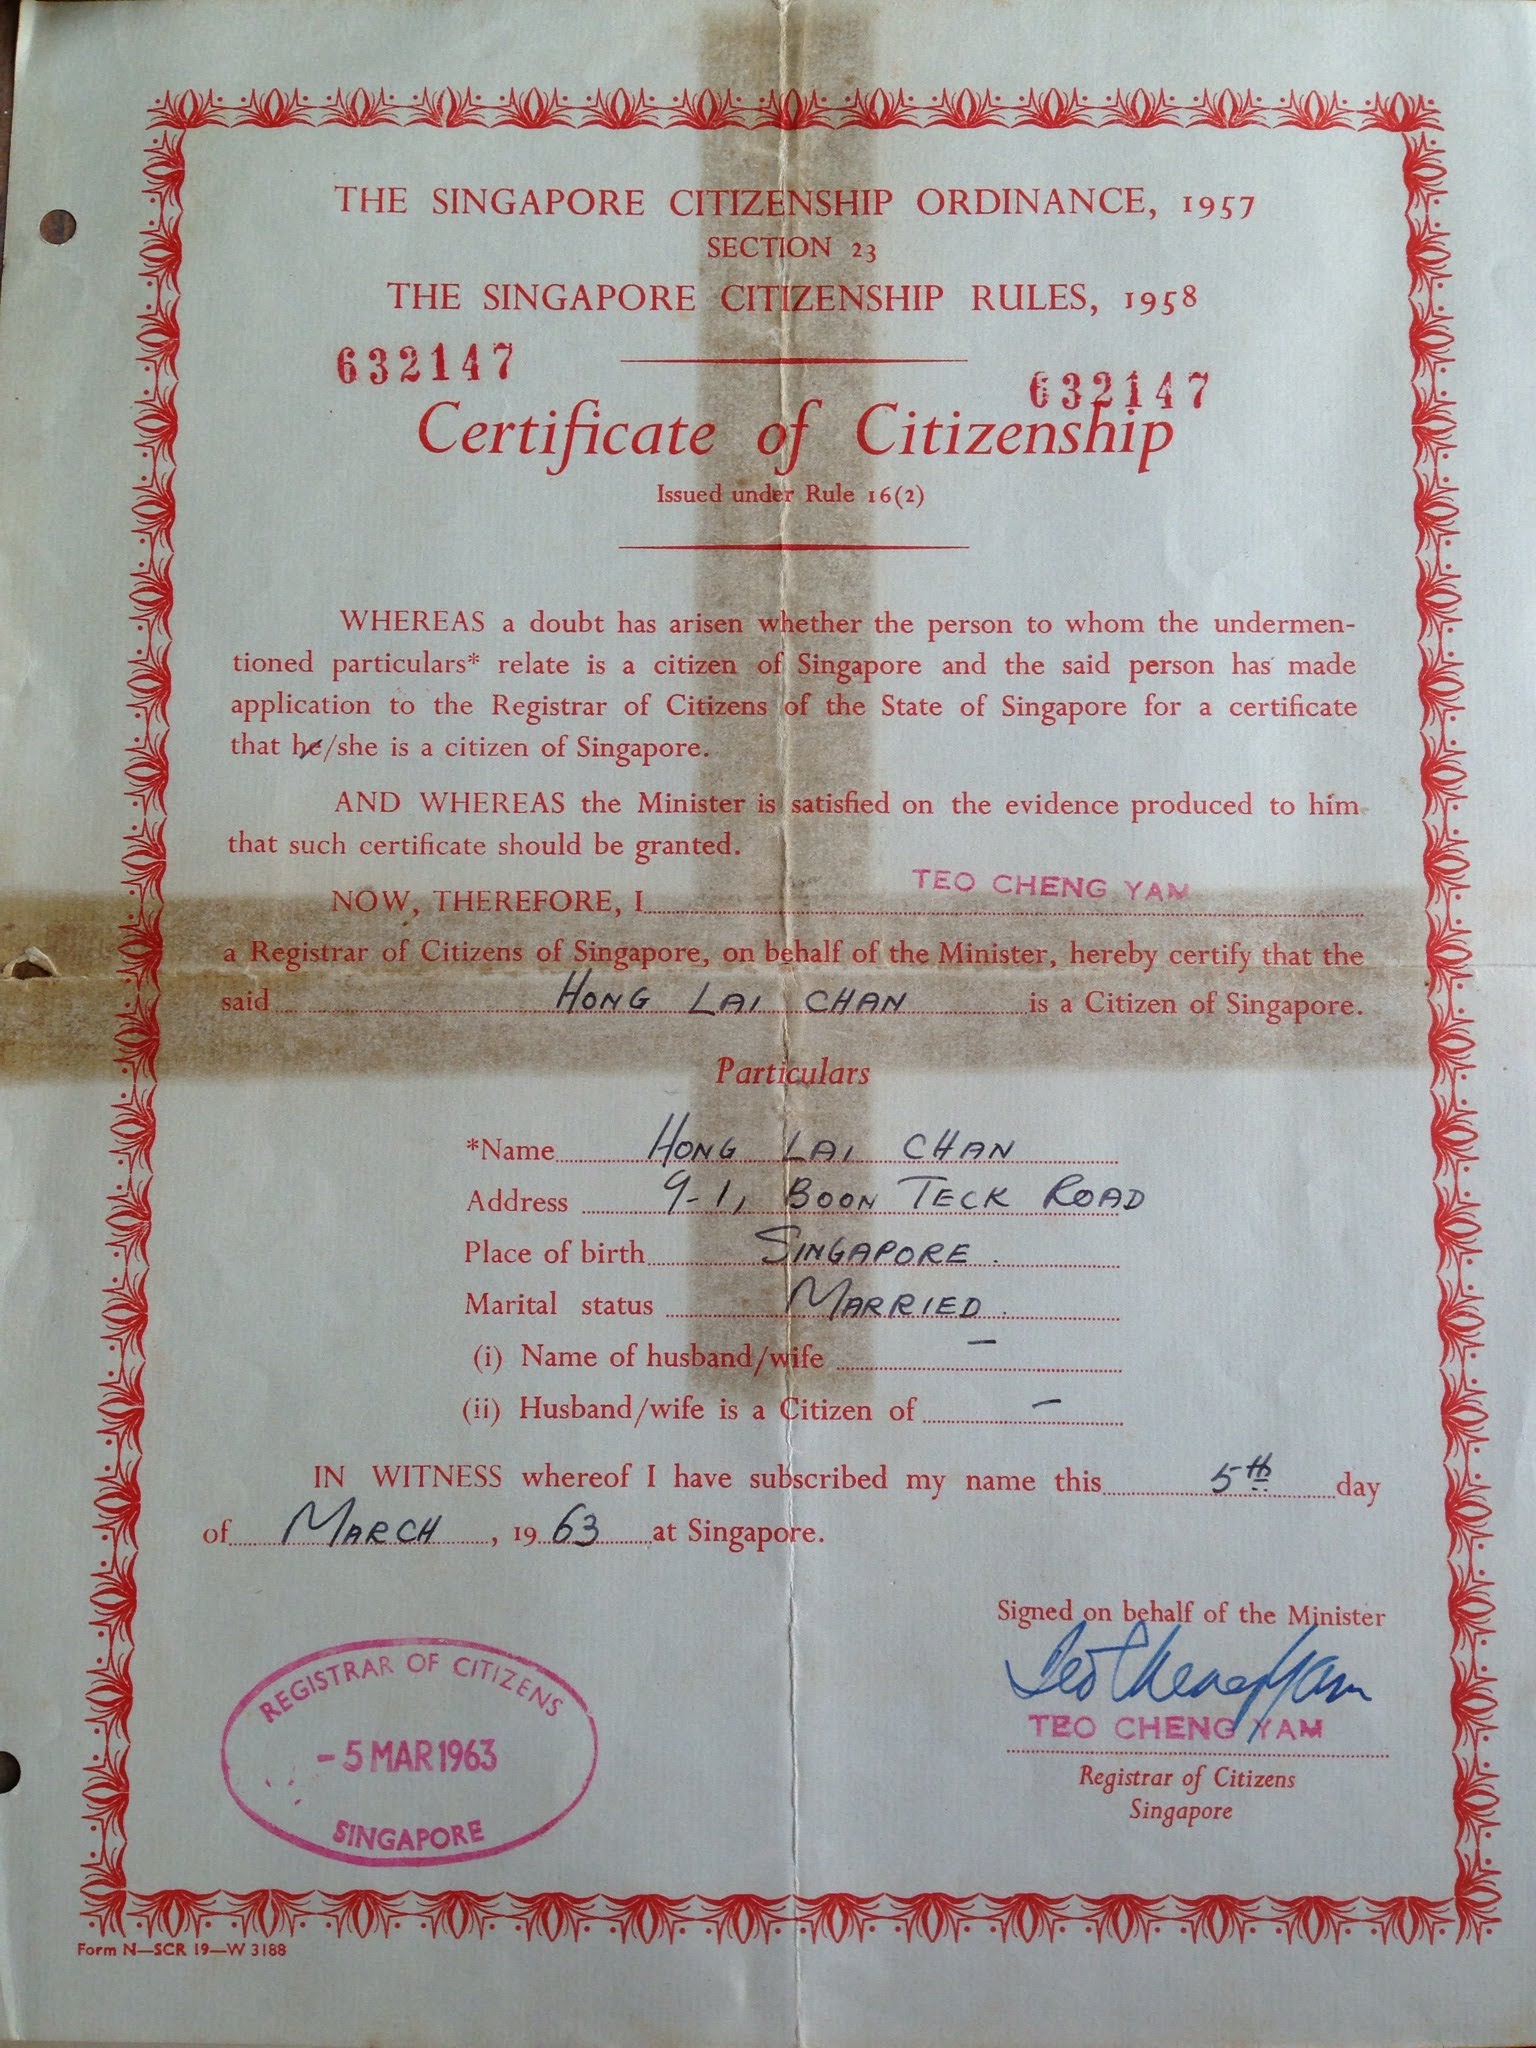 THE SINGAPORE CITIZENSHIP ORDINANCE, 1957
SECTION 23
THE SINGAPORE CITIZENSHIP RULES, 1958
632147
632147
Certificate of Citizenship
Issued under Rule 16(2)
WHEREAS a doubt has arisen whether the person to whom the undermen-
tioned particulars* relate is a citizen of Singapore and the said person has made
application to the Registrar of Citizens of the State of Singapore for a certificate
that he/she is a citizen of Singapore.
AND WHEREAS the Minister is satisfied on the evidence produced to him
that such certificate should be granted.
NOW, THEREFORE, I TEO CHENG YAM
a Registrar of Citizens of Singapore, on behalf of the Minister, hereby certify that the
said HONG LAI CHAN is a Citizen of Singapore.
Particulars
*Name HONG LAI CHAN
Address 9-1, BOON TECK ROAD
Place of birth SINGAPORE.
Marital status MARRIED.
(i) Name of husband/wife —
(ii) Husband/wife is a Citizen of —
IN WITNESS whereof I have subscribed my name this 5th day
of MARCH, 1963 at Singapore.
Signed on behalf of the Minister
Teo Cheng Yam
TEO CHENG YAM
Registrar of Citizens
Singapore
REGISTRAR OF CITIZENS
-5 MAR 1963
SINGAPORE
Form N—SCR 19—W 3188